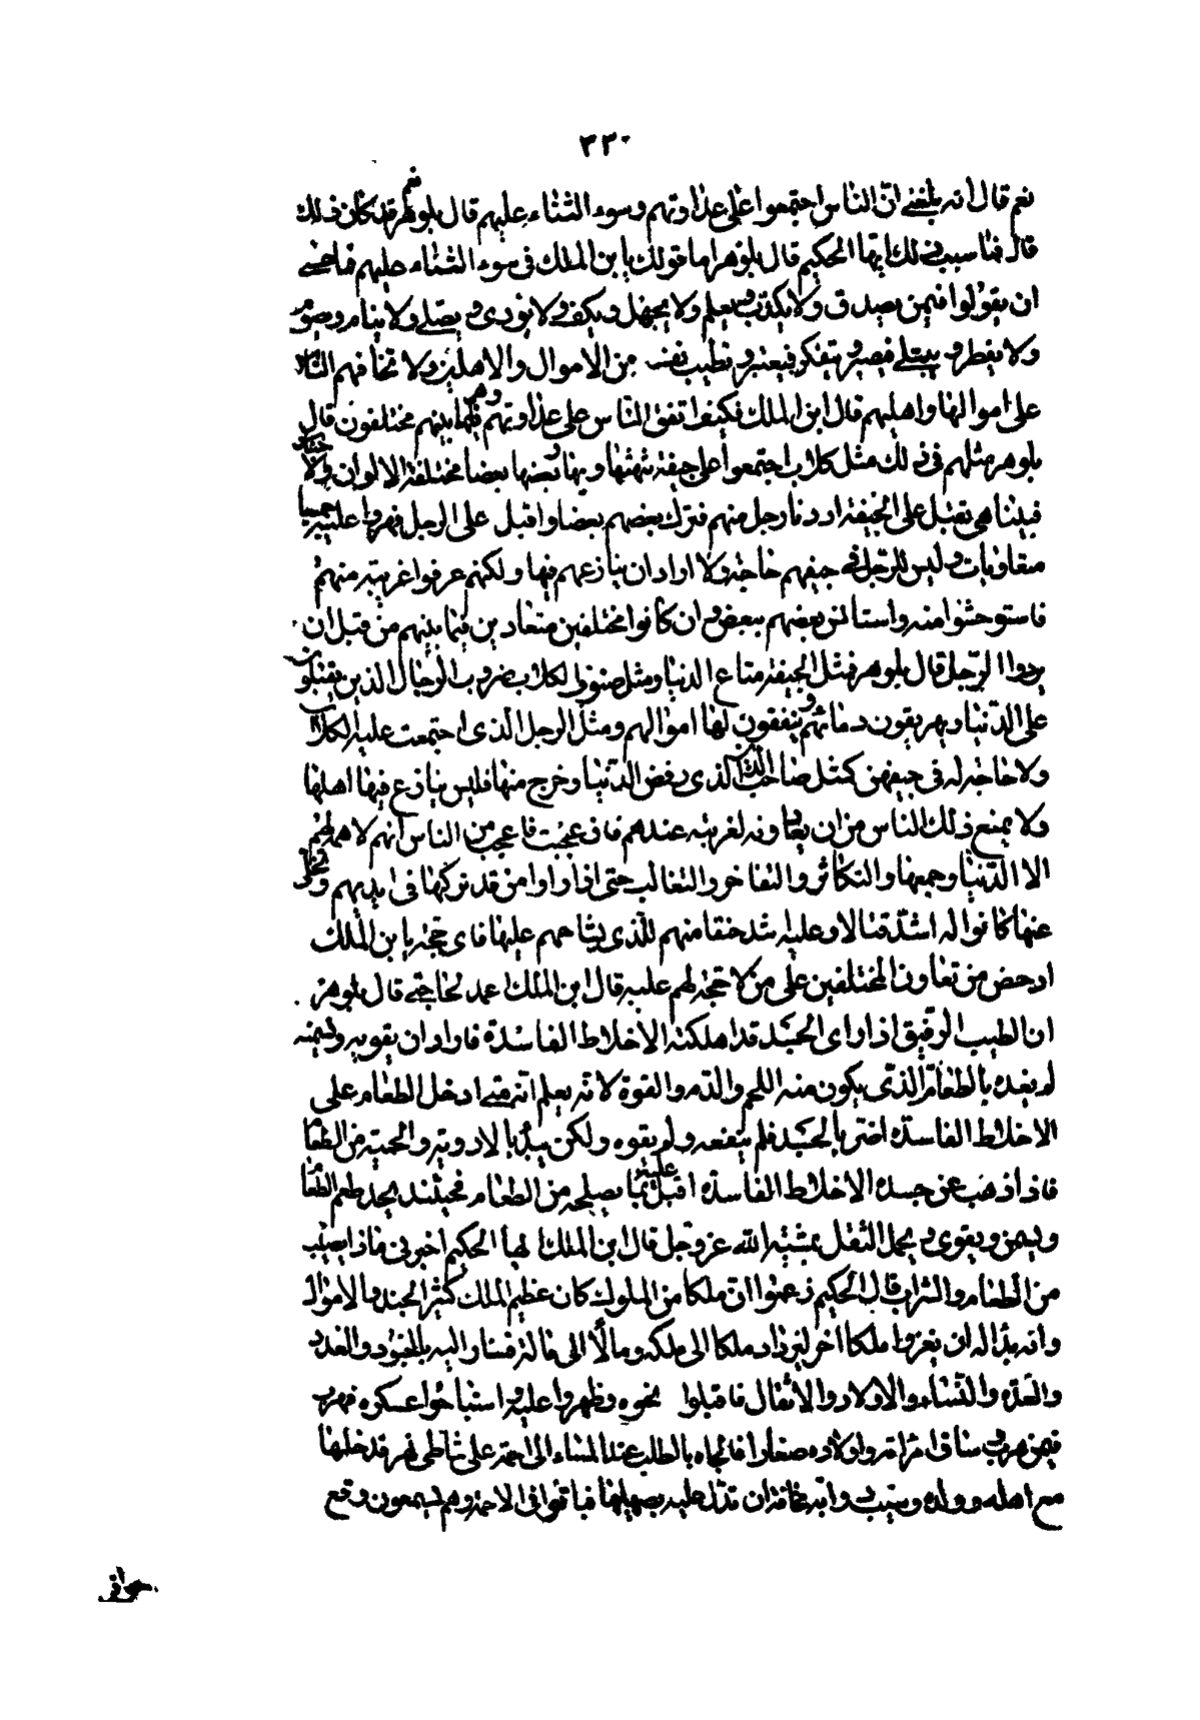 ٣٣٠
نعم قال انه بلغنى انّ الناس اجتمعوا على عداوتهم وسوء الثناء عليهم قال بلوهر نعم قد كان ذلك
قال فما سبب ذلك ايها الحكيم قال بلوهر اما قولك يا بن الملك فى سوء الثناء عليهم فما عسى
ان يقولوا فيمن يصدق ولا يكذب ويعلم ولا يجهل ويكف ولا يؤذى ويصلى ولا ينام ويصوم
ولا يفطر ويبتلى فيصبر ويتفكر فيعتبر ويطيب نفسه من الاموال والاهلين ولا تخافهم الناس
على اموالها واهليهم قال ابن الملك فكيف اتفق الناس على عداوتهم وهم فيما بينهم مختلفون قال
بلوهر مثلهم فى ذلك مثل كلاب اجتمعوا على جيفة تنهشها ويهار بعضها بعضا مختلفة الالوان والاجناس
فبينا هى تقبل على الجيفة اذ دنا رجل منهم فترك بعضهم بعضا واقبل على الرجل فهروا عليه جميعا
متعاويات وليس للرجل فى جيفهم حاجة ولا اراد ان ينازعهم فيها ولكنهم عرفوا غربته منهم
فاستوحشوا منه واستانس بعضهم ببعض وان كانوا مختلفين متعادين فيما بينهم من قبل ان
يردوا الرّجل قال بلوهر فمثل الجيفة متاع الدنيا ومثل صنوف الكلاب ضروب الرجال الذين يقتتلون
على الدّنيا ويهريقون دمائهم وينفقون لها اموالهم ومثل الرجل الذى اجتمعت عليه الكلاب
ولا حاجة له فى جيفهن كمثل صاحب الدين الذى رفض الدّنيا وخرج منها فليس ينازع فيها اهلها
ولا يمنع ذلك الناس من ان يعادونه لغربته عندهم فان عجبت فاعجب من الناس انهم لا همة لهم
الا الدّنيا وجمعها والتكاثر والتفاخر والتغالب حتى اذا راوا من قد تركها فى ايديهم وتخلى
عنها كانوا له اشدّ قتالا وعليه اشد حنقا منهم للّذى يشاحهم عليها فاى حجة يا بن الملك
ادحض من تعاون المختلفين على من لا حجة لهم عليه قال ابن الملك اعمد لحاجتى قال بلوهر
ان الطبيب الرفيق اذا راى الجسد قد اهلكته الاخلاط الفاسدة فاراد ان يقويه ويسمنه
لم يغده بالطعام الذى يكون منه اللحم والدّم والقوة لانه يعلم انه متى ادخل الطعام على
الاخلاط الفاسدة اضر بالجسد فلم ينفعه ولم يقوه ولكن يبدأ بالادوية والحمية من الطعام
فاذا ذهب عن جسده الاخلاط الفاسدة اقبل عليه بما يصلحه من الطعام فحينئذ يجد طعم الطعام
ويسمن ويقوى ويحمل الثقل بمشية الله عزوجل قال ابن الملك ايها الحكيم اخبرنى ماذا يصيب
من الطعام والشراب قال الحكيم زعموا ان ملكا من الملوك كان عظيم الملك كثير الجند والاموال
وانه بدا له ان يغزوا ملكا اخر ليزداد ملكا الى ملكه ومالا الى ماله فسار اليه بالجنود والعدد
والعدّه والنّساء والاولاد والاثقال فاقبلوا نحوه وظهروا عليه واستباحوا عسكره فهرب
فيمن هرب وساق امراته واولاده صغارا فالجاه بالطلب عند المساء الى اجمة على شاطى نهر فدخلها
مع اهله وولده وسيب دوابه مخافة ان تدل عليه بصهيلها فباتوا فى الاجمة وهم يسمعون وقع
حوافر